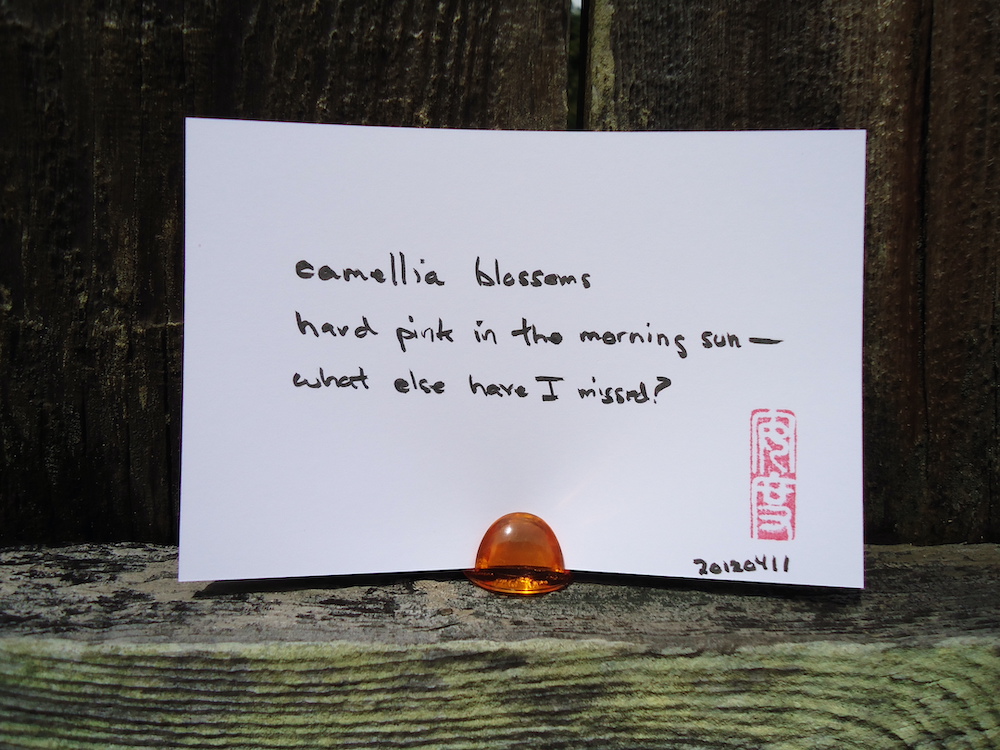 camellia blossoms
hard pink in the morning sun—
what else have I missed?
20120411